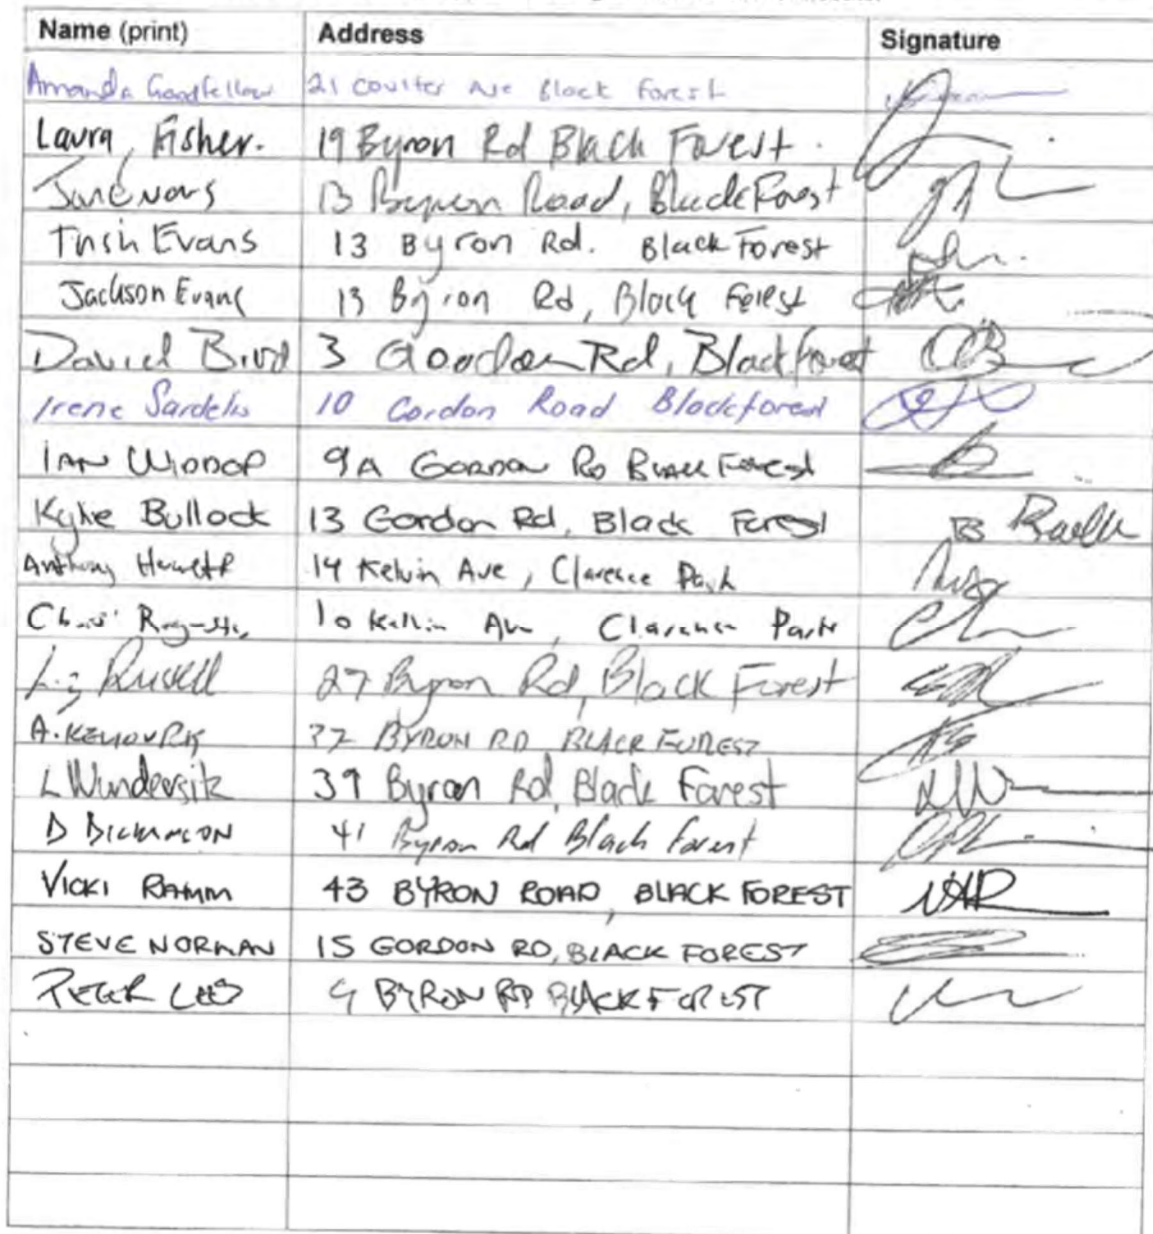 Name (print) Address Signature
Amanda Goodfellow 21 Coulter Ave Black Forest
Laura Fisher. 19 Byron Rd Black Forest.
13 Byron Road, Black Forest
Trish Evans 13 Byron Rd. Black Forest
Jackson Evans 13 Byron Rd, Black Forest
David Bird 3 Gordon Rd, Black Forest
Irene Sardelis 10 Gordon Road Blackforest
IAN WIDDOP 9A GORDON RD BLACK FOREST
Kylie Bullock 13 Gordon Rd, Black Forest
Anthony 14 Kelvin Ave, Clarence Park
Chris 10 Kelvin Ave, Clarence Park
Liz Russell 27 Byron Rd, Black Forest
A. BYRON RD BLACK FOREST
L Wundersitz 39 Byron Rd, Black Forest
D DICKINSON 41 Byron Rd Black Forest
VICKI RAMM 43 BYRON ROAD, BLACK FOREST
STEVE NORMAN 15 GORDON RD, BLACK FOREST
PETER LEES 9 BYRON RD BLACK FOREST